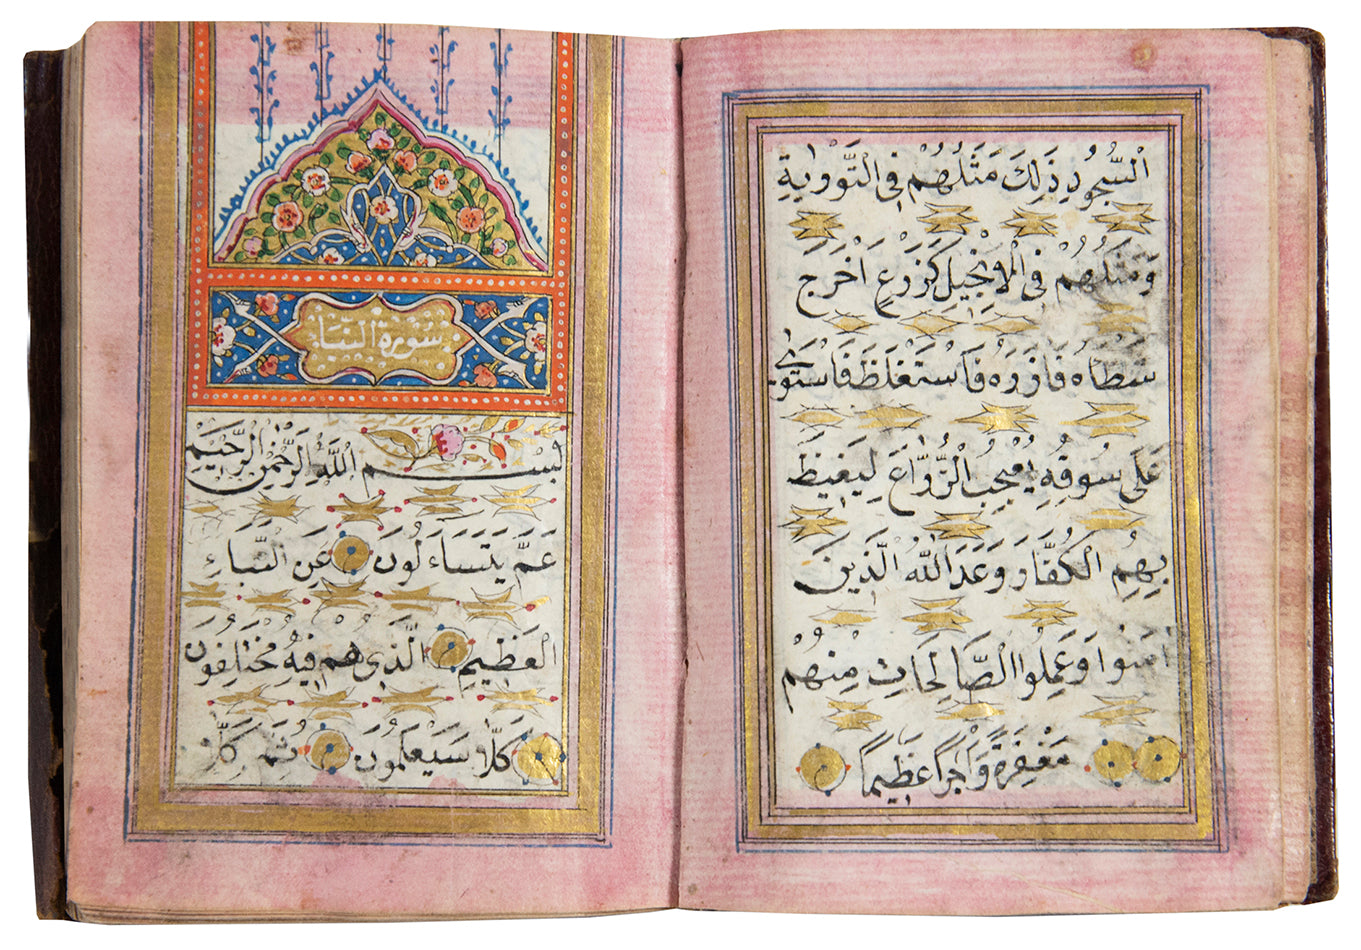 السُّجُودِ ذَلِكَ مَثَلُهُمْ فِي التَّوْرٰيةِ
وَمَثَلُهُمْ فِي الْاِنْجِيلِ كَزَرْعٍ اَخْرَجَ
شَطْاَهُ فَاٰزَرَهُ فَاسْتَغْلَظَ فَاسْتَوٰى
عَلٰى سُوقِهِ يُعْجِبُ الزُّرَّاعَ لِيَغِيظَ
بِهِمُ الْكُفَّارَ وَعَدَ اللّٰهُ الَّذِينَ
اٰمَنُوا وَعَمِلُوا الصَّالِحَاتِ مِنْهُمْ
مَغْفِرَةً وَاَجْرًا عَظِيمًا
سُورَةُ النَّبَأِ
بِسْمِ اللّٰهِ الرَّحْمٰنِ الرَّحِيمِ
عَمَّ يَتَسَاءَلُونَ عَنِ النَّبَاءِ
الْعَظِيمِ الَّذِي هُمْ فِيهِ مُخْتَلِفُونَ
كَلَّا سَيَعْلَمُونَ ثُمَّ كَلَّا